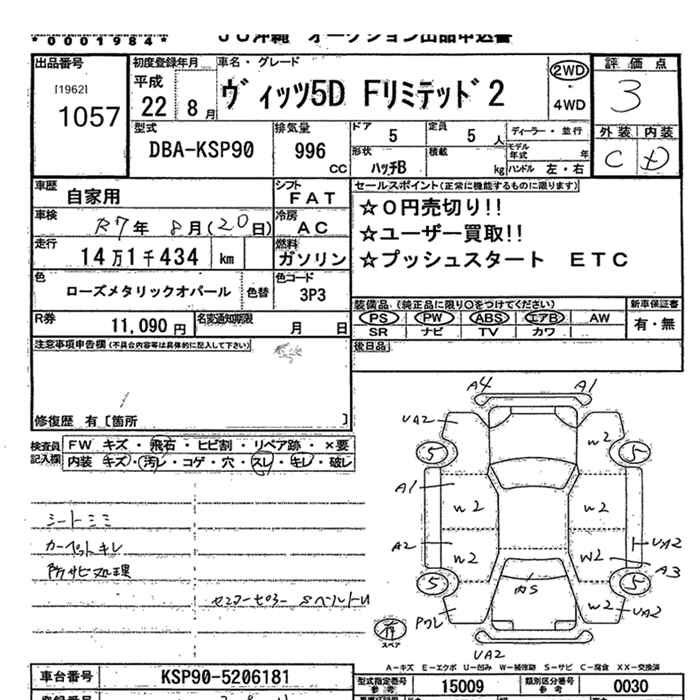 *0001984*
JU沖縄 オークション出品申込書
出品番号
[1962]
1057
初度登録年月
平成
22 8月
車名・グレード
ヴィッツ5D Fリミテッド2
2WD
・
4WD
評価点
3
外装 内装
C D
型式
DBA-KSP90
排気量
996 CC
ドア 5
形状 ハッチB
定員 5 人
積載 kg
ディーラー・並行
モデル年式 年
ハンドル 左・右
車歴
自家用
シフト
FAT
車検
R7年 8月(20日)
冷房
AC
走行
14万1千434 km
燃料
ガソリン
色
ローズメタリックオパール
色替
色コード
3P3
R券
11,090円
名変通知期限
月 日
セールスポイント(正常に機能するものに限ります)
☆0円売切り!!
☆ユーザー買取!!
☆プッシュスタート ETC
装備品:(純正品に限り○をつけてください)
PS PW ABS エアB AW
SR ナビ TV カワ
新車保証書
有・無
後日品
注意事項申告欄(不具合内容等は具体的に記入して下さい)
修復歴 有[箇所 ]
検査員記入欄
FW キズ・飛石・ヒビ割・リペア跡・×要
内装 キズ・汚レ・コゲ・穴・スレ・キレ・破レ
シートシミ
カーペットキレ
防サビ処理
A4 A1
UA2 W2
5 5
A1 W2 W2
A2 W2 W2 UA2
A3
5 内S 5
Pワレ W2 UA2
スペア
UA2
A-キズ E-エクボ U-凹み W-補修跡 S-サビ C-腐食 XX-交換済
車台番号
KSP90-5206181
型式指定番号
参考
15009
類別区分番号
参考
0030